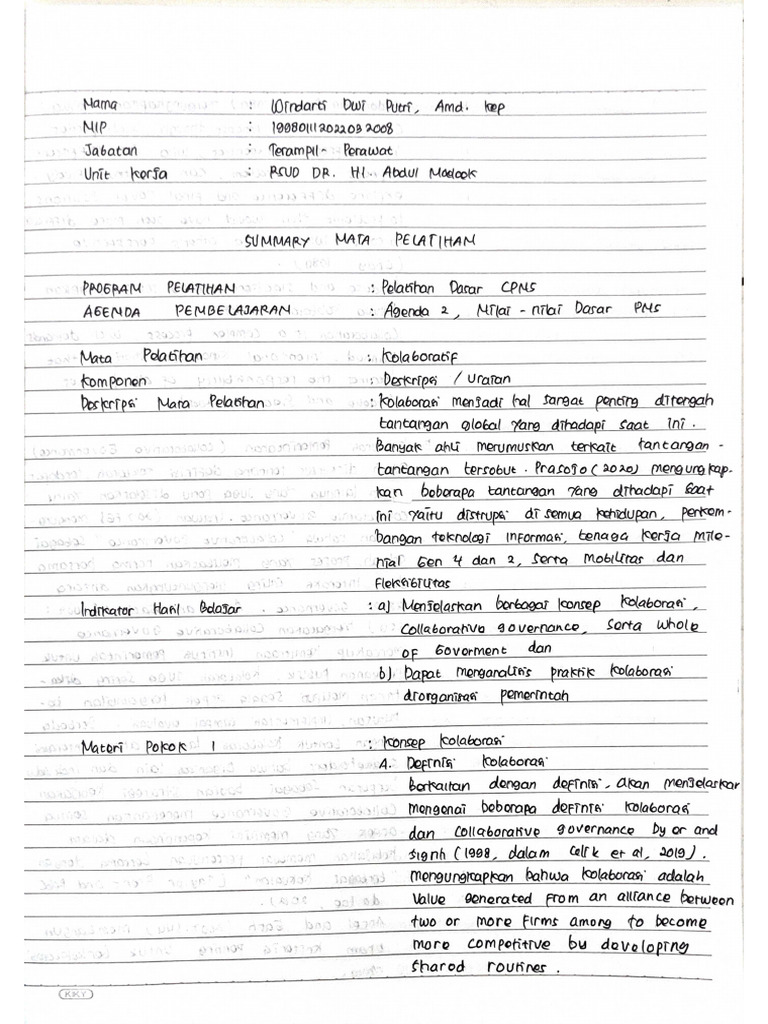 Nama : Windarti Dwi Putri, Amd. Kep
NIP : 199801112022032008
Jabatan : Terampil - Perawat
Unit Kerja : RSUD DR. H. Abdul Moeloek
SUMMARY MATA PELATIHAN
PROGRAM PELATIHAN : Pelatihan Dasar CPNS
AGENDA PEMBELAJARAN : Agenda 2, Nilai - nilai Dasar PNS
Mata Pelatihan : Kolaboratif
Komponen : Deskripsi / Uraian
Deskripsi Mata Pelatihan : Kolaborasi menjadi hal sangat penting ditengah
tantangan global yang dihadapi saat ini.
Banyak ahli merumuskan terkait tantangan -
tantangan tersebut. Prasojo (2020) mengungkap-
kan beberapa tantangan yang dihadapi saat
ini yaitu distrupsi di semua kehidupan, perkem-
bangan teknologi informasi, tenaga kerja mile-
nial Gen 4 dan 2, serta Mobilitas dan
Fleksibilitas
Indikator Hasil Belajar : a) Menjelaskan berbagai konsep kolaborasi,
Collaborative governance, serta whole
of Goverment dan
b) Dapat menganalisis praktik kolaborasi
diorganisasi pemerintah
Materi Pokok 1 : Konsep Kolaborasi
A. Definisi Kolaborasi
Berkaitan dengan definisi, akan menjelaskar
mengenai beberapa definisi kolaborasi
dan collaborative governance by or and
Signh (1998, dalam Celik et al, 2019).
mengungkapkan bahwa kolaborasi adalah
Value generated from an alliance between
two or more firms among to become
more competitive by developing
shared routines.
KKY